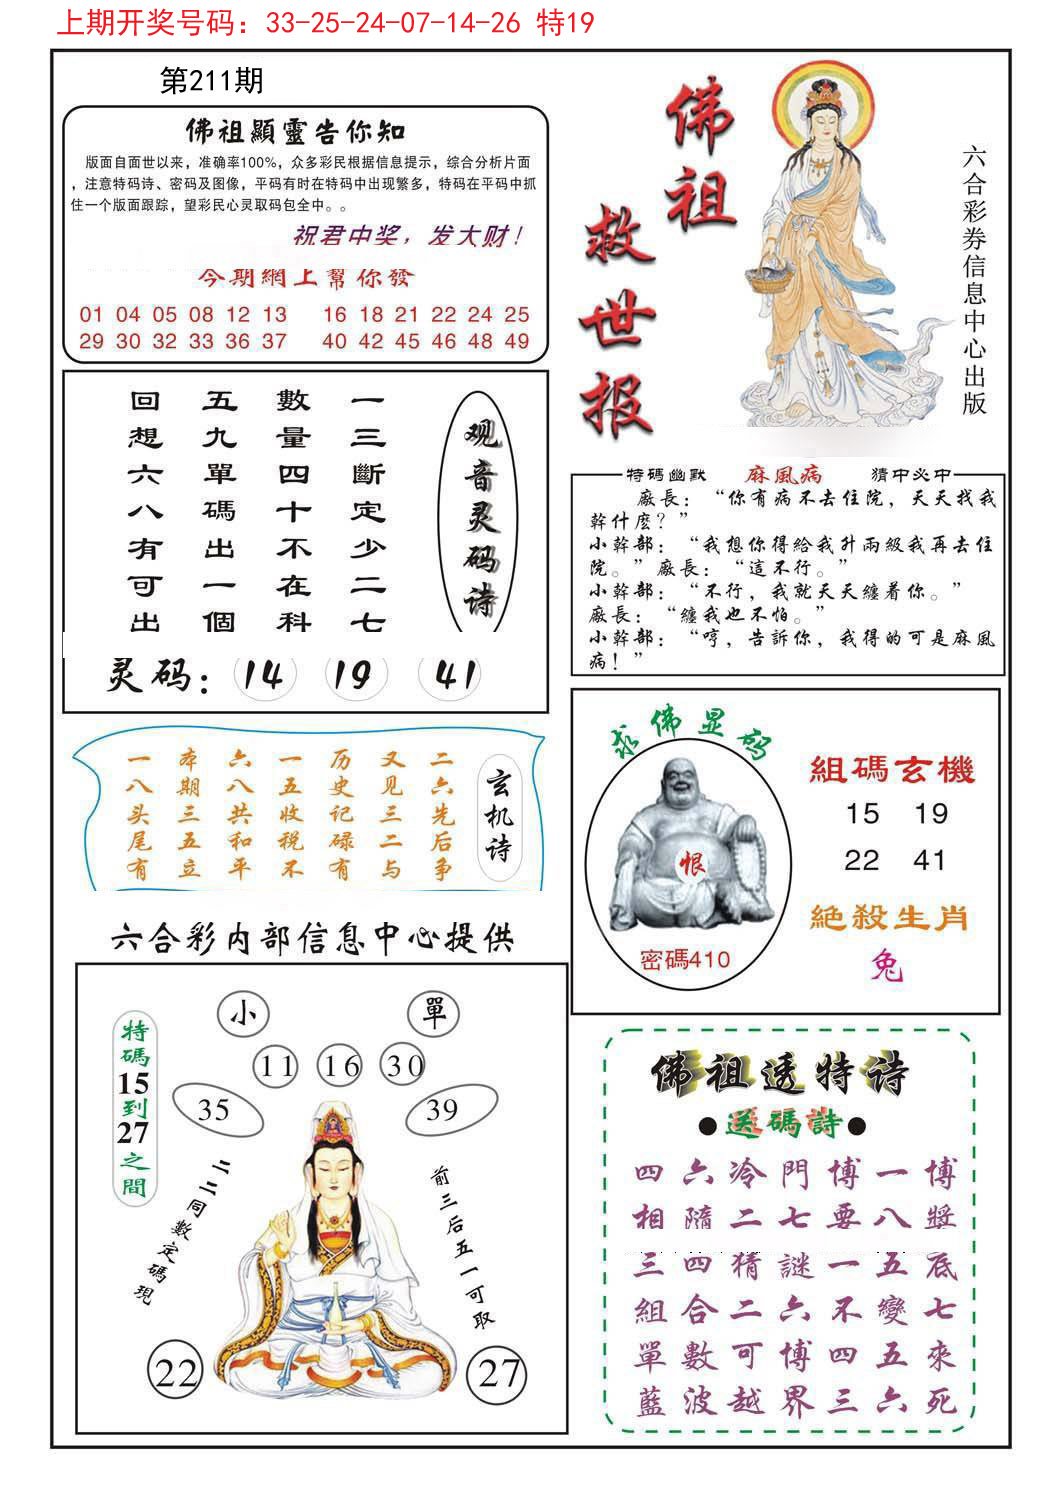 上期开奖号码：33-25-24-07-14-26 特19
第211期
佛祖顯靈告你知
版面自面世以来，准确率100%，众多彩民根据信息提示，综合分析片面
，注意特码诗、密码及图像，平码有时在特码中出现繁多，特码在平码中抓
住一个版面跟踪，望彩民心灵取码包全中。。
祝君中奖，发大财！
今期網上幫你發
01 04 05 08 12 13 16 18 21 22 24 25
29 30 32 33 36 37 40 42 45 46 48 49
佛祖
救世报
六合彩券信息中心出版
观音灵码诗
一三斷定少二七
數量四十不在科
五九單碼出一個
回想六八有可出
灵码：14 19 41
特碼幽默 麻風病 猜中必中
廠長：“你有病不去住院，天天找我
幹什麼？”
小幹部：“我想你得給我升兩級我再去住
院。”廠長：“這不行。”
小幹部：“不行，我就天天纏着你。”
廠長：“纏我也不怕。”
小幹部：“哼，告訴你，我得的可是麻風
病！”
玄机诗
二六先后争
又见三二与
历史记碌有
一五收税不
六八共和平
本期三五立
一八头尾有
求佛显码
恨
密碼410
組碼玄機
15 19
22 41
絕殺生肖
兔
六合彩内部信息中心提供
特碼15到27之間
小 單
11 16 30
35 39
二二同數定碼現
前三后五一可取
22 27
佛祖透特诗
●送碼詩●
四六冷門博一博
相隨二七要八獎
三四猜謎一五底
組合二六不變七
單數可博四五來
藍波越界三六死